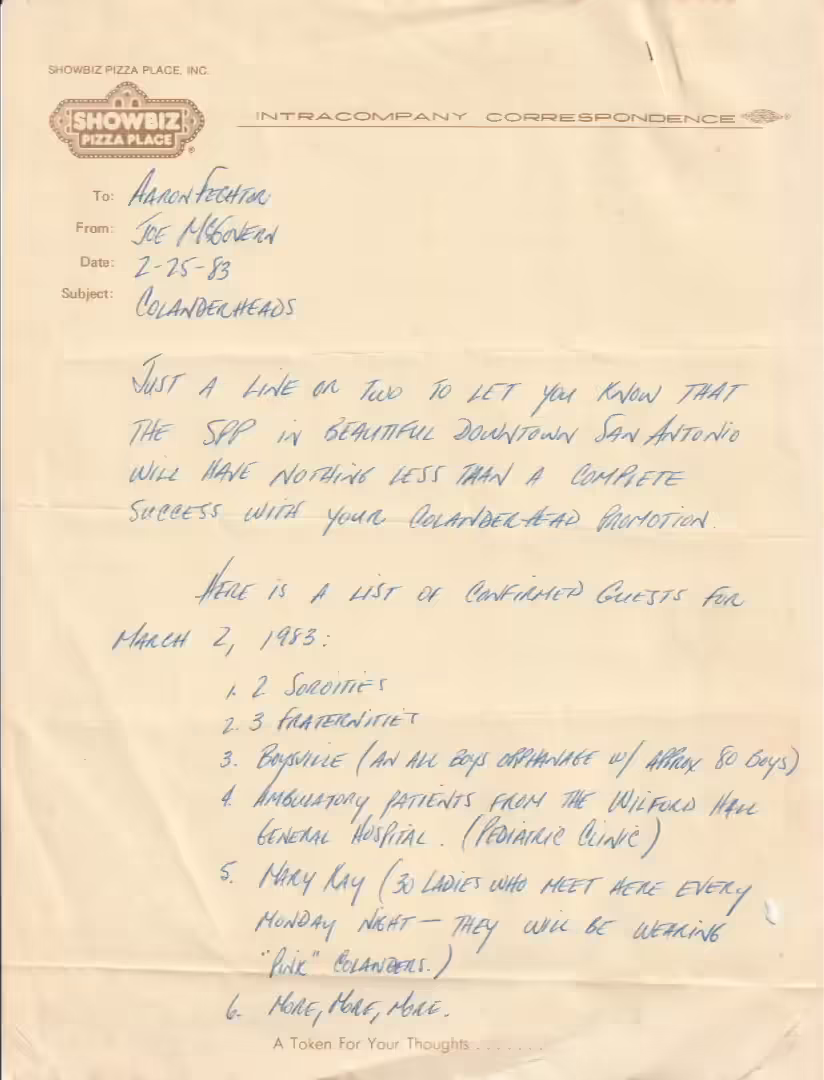 SHOWBIZ PIZZA PLACE, INC.
SHOWBIZ
PIZZA PLACE
INTRACOMPANY CORRESPONDENCE
To: AARON FECHTOR
From: JOE MCGOVERN
Date: 2-25-83
Subject: COLANDERHEADS
JUST A LINE OR TWO TO LET YOU KNOW THAT
THE SPP IN BEAUTIFUL DOWNTOWN SAN ANTONIO
WILL HAVE NOTHING LESS THAN A COMPLETE
SUCCESS WITH YOUR COLANDERHEAD PROMOTION.
HERE IS A LIST OF CONFIRMED GUESTS FOR
MARCH 2, 1983:
1. 2 SOROITIES
2. 3 FRATERNITIES
3. BOYSVILLE (AN ALL BOYS ORPHANAGE W/ APPROX 80 BOYS)
4. AMBULATORY PATIENTS FROM THE WILFORD HALL
GENERAL HOSPITAL. (PEDIATRIC CLINIC)
5. MARY KAY (30 LADIES WHO MEET HERE EVERY
MONDAY NIGHT — THEY WILL BE WEARING
"PINK" COLANDERS.)
6. MORE, MORE, MORE.
A Token For Your Thoughts . . . . . . .